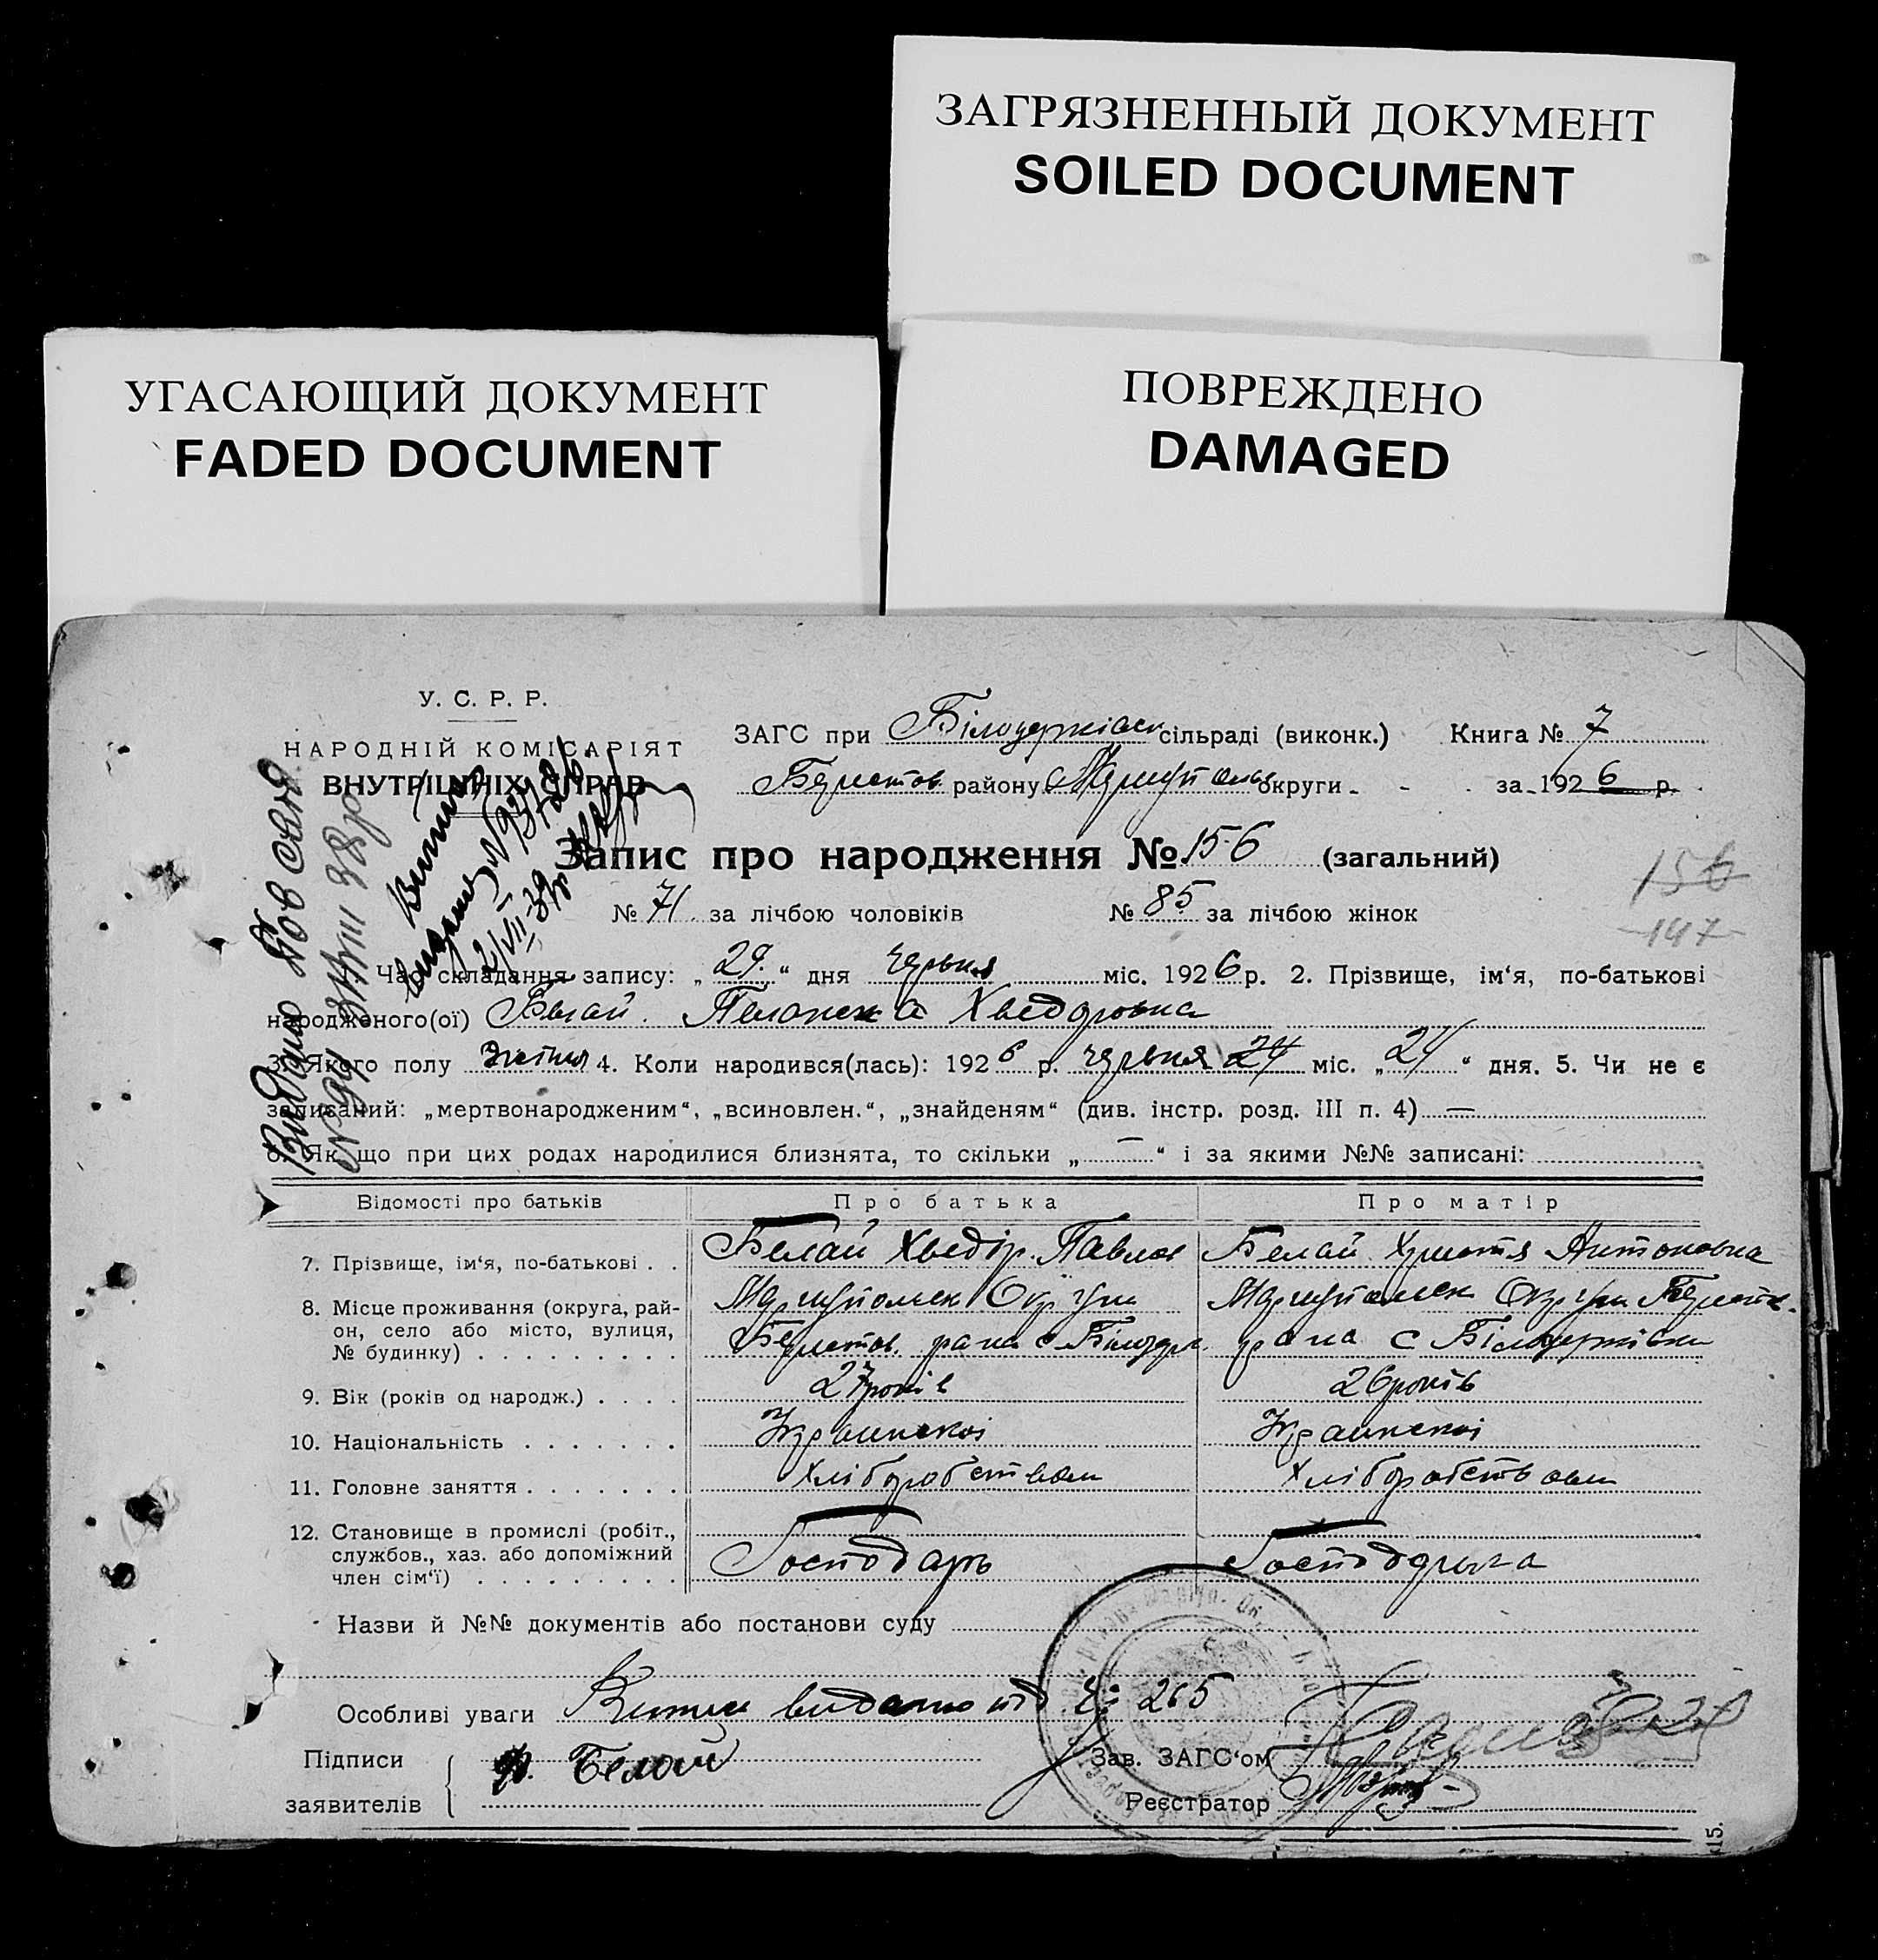 ЗАГРЯЗНЕННЫЙ ДОКУМЕНТ
SOILED DOCUMENT
УГАСАЮЩИЙ ДОКУМЕНТ
FADED DOCUMENT
ПОВРЕЖДЕНО
DAMAGED
У. С. Р. Р.
НАРОДНІЙ КОМІСАРІЯТ
ВНУТРІШНІХ СПРАВ
ЗАГС при Білоцерківск сільраді (виконк.) Книга № 7
Берестов. району Маріупольс округи за 1926 р.
Запис про народження № 156 (загальний)
156
147
№ 71 за лічбою чоловіків № 85 за лічбою жінок
1. Час складання запису: „29.“ дня червня міс. 1926 р. 2. Прізвище, ім‘я, по-батькові
народженого(ої) Белай. Хведоровна
3. Якого полу 4. Коли народився(лась): 1926 р. червня 24 міс. „24“ дня. 5. Чи не є
записаний: „мертвонародженим“, „всиновлен.“, „знайденям“ (див. інстр. розд. III п. 4) —
6. Як що при цих родах народилися близнята, то скільки „—“ і за якими №№ записані:
Відомості про батьків Про батька Про матір
7. Прізвище, ім‘я, по-батькові . . Белай Хведір. Павлов Белай Христя Антоновна
8. Місце проживання (округа, рай- Маріупольск Округи Маріупольск Округи Берестов.
он, село або місто, вулиця, Берестов. рана с Білоцерк. рана с Білоцерківки
№ будинку) . . . . . . . . .
9. Вік (років од народж.) . . . . 27 років 26 років
10. Національність . . . . . . . Украинскоі Украинскоі
11. Головне заняття . . . . . . . Хліборобством Хліборобством
12. Становище в промислі (робіт.,
службов., хаз. або допоміжний Господарь
член сім‘ї) . . . . . . . . .
Назви й №№ документів або постанови суду
Особливі уваги видано 265
Підписи Ф. Белай Зав. ЗАГС‘ом
заявителів Реєстратор
15.